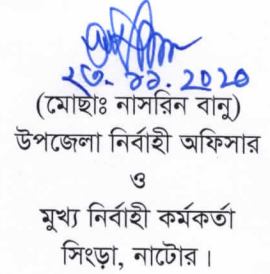 ২৩.১১.2020
(মোছাঃ নাসরিন বানু)
উপজেলা নির্বাহী অফিসার
ও
মুখ্য নির্বাহী কর্মকর্তা
সিংড়া, নাটোর।